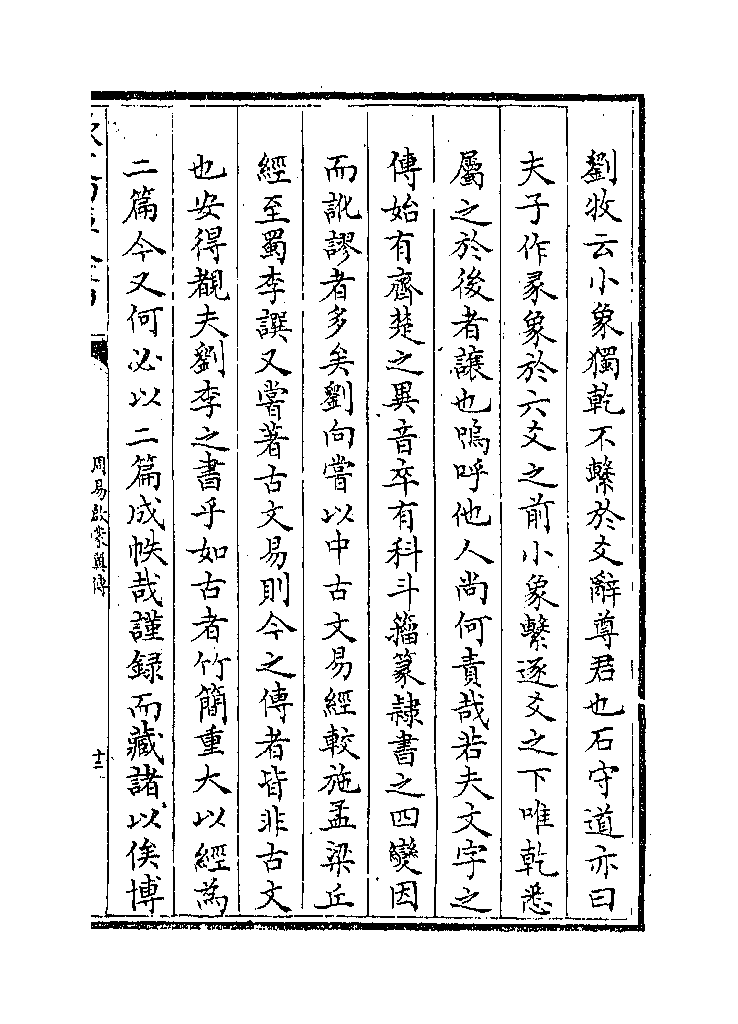 劉牧云小象獨乾不繫於爻辭尊君也石守道亦曰
夫子作彖象於六爻之前小象繫逐爻之下唯乾悉
屬之於後者讓也嗚呼他人尚何責哉若夫文字之
傳始有齊楚之異音卒有科斗籀篆隷書之四變因
而訛謬者多矣劉向嘗以中古文易經較施孟梁丘
經至蜀李譔又嘗著古文易則今之傳者皆非古文
也安得覩夫劉李之書乎如古者竹簡重大以經為
二篇今又何必以二篇成帙哉謹録而藏諸以俟博
周易啟蒙翼傳
十二